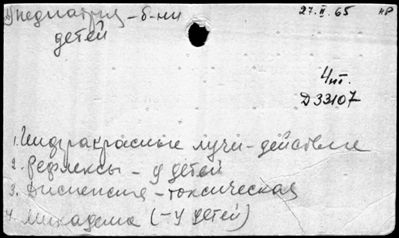 Педиатрия - б-ни
детей
27.II.65
НР
Чт.
Д33107
1. Инфракрасные лучи - действие
2. Рефлексы - у детей
3. Диспепсия - токсическая
4. (- у детей)